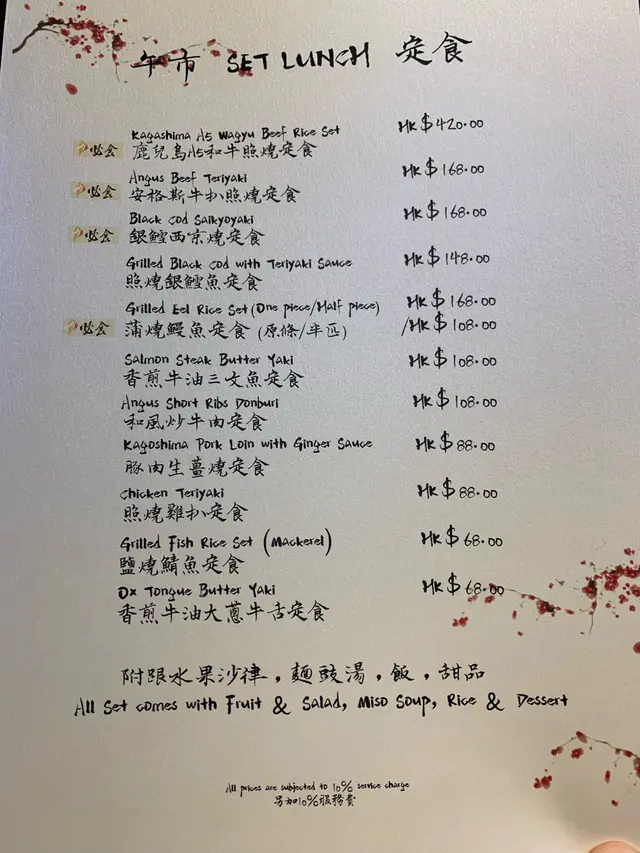 午市 SET LUNCH 定食
Kagashima A5 Wagyu Beef Rice Set HK$420.00
必食 鹿兒島A5和牛照燒定食
Angus Beef Teriyaki HK$168.00
必食 安格斯牛扒照燒定食
Black Cod Saikyoyaki HK$168.00
必食 銀鱈西京燒定食
Grilled Black Cod with Teriyaki Sauce HK$148.00
照燒銀鱈魚定食
Grilled Eel Rice Set (One piece/Half piece) HK$168.00
必食 蒲燒鰻魚定食 (原條/半匹) /HK$108.00
Salmon Steak Butter Yaki HK$108.00
香煎牛油三文魚定食
Angus Short Ribs Donburi HK$108.00
和風炒牛肉定食
Kagoshima Pork Loin with Ginger Sauce HK$88.00
豚肉生薑燒定食
Chicken Teriyaki HK$88.00
照燒雞扒定食
Grilled Fish Rice Set (Mackerel) HK$68.00
鹽燒鯖魚定食
Ox Tongue Butter Yaki HK$68.00
香煎牛油大蔥牛舌定食
附跟水果沙律，麵豉湯，飯，甜品
All Set comes with Fruit & Salad, Miso Soup, Rice & Dessert
All prices are subjected to 10% service charge
另加10%服務費